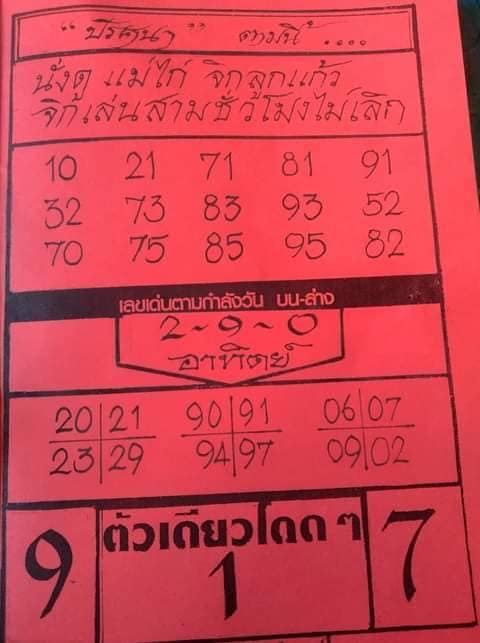 "ปริศนา" ดาวมณี"....
นั่งดู แม่ไก่ จิกลูกแก้ว
จิกเล่นสามชั่วโมงไม่เลิก
10 21 71 81 91
32 73 83 93 52
70 75 85 95 82
เลขเด่นตามกำลังวัน บน-ล่าง
2-9-0
อาทิตย์
20 21 90 91 06 07
23 29 94 97 09 02
ตัวเดียวโดด ๆ
9 1 7